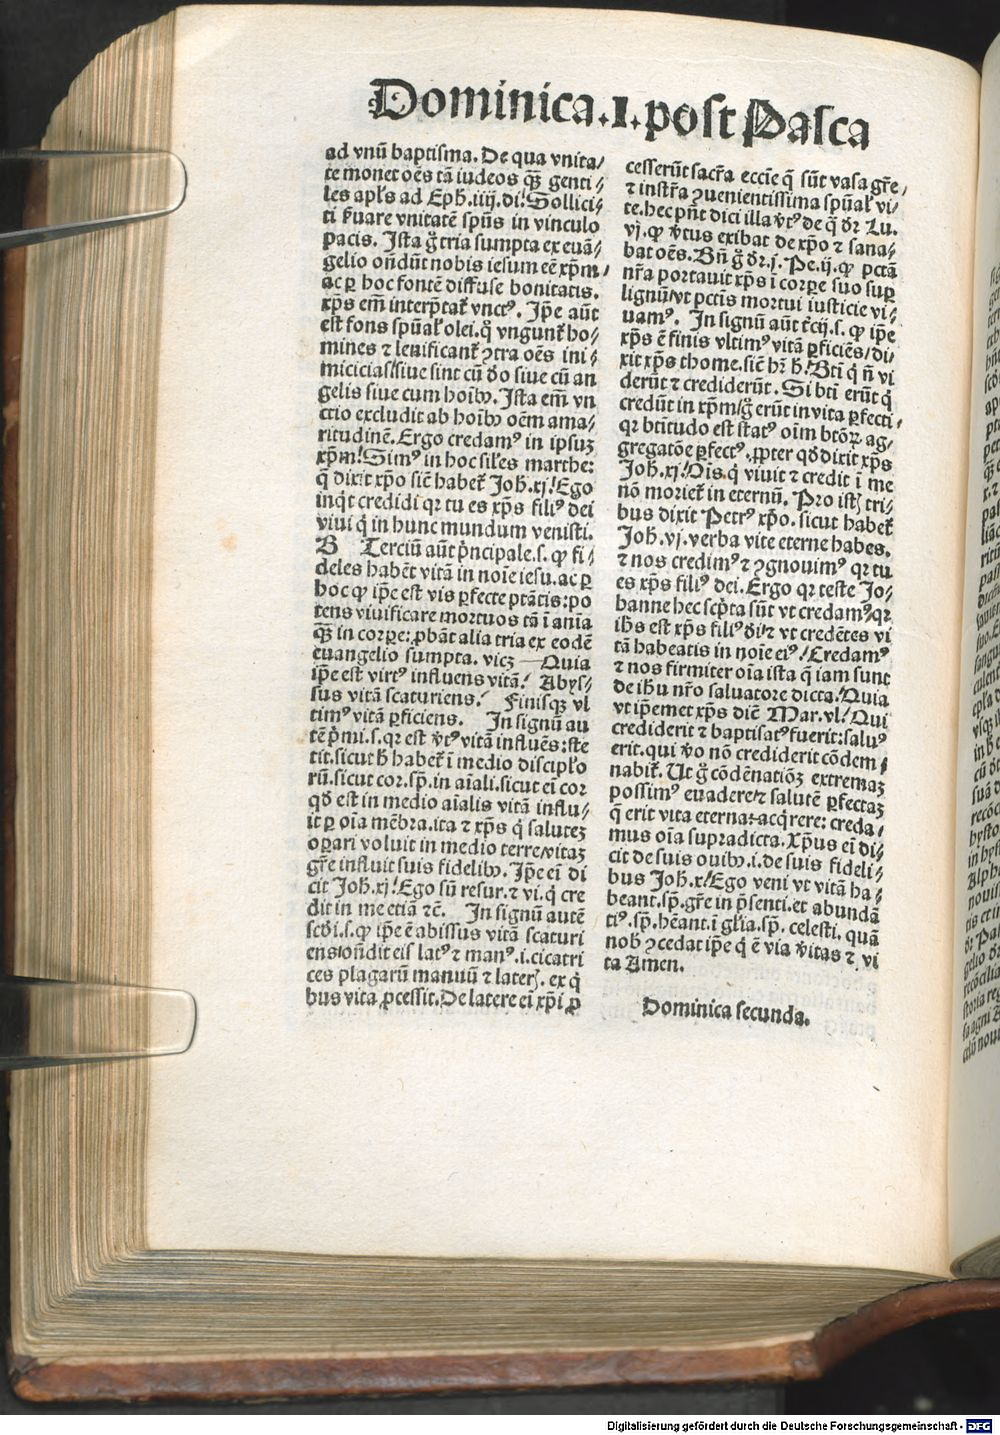 Dominica.I.post Pasca
ad vnū baptisma. De qua vnita/
te monet oēs tā iudeos q̄ꝫ genti/
les apl's ad Eph. iiij. di! Sollici/
ti ẜuare vnitatē spūs in vinculo
pacis. Ista g̊ tria sumpta ex euā/
gelio oñdūt nobis iesum eē xp̄m/
ac ꝑ hoc fontē diffuse bonitatis.
xp̄s em̄ interp̄tat᷑ vnctꝰ. Ip̄e aūt
est fons spūal' olei. q̊ vngunt᷑ ho/
mines ⁊ lenificant᷑ ꝯtra oēs ini/
micicias/siue sint cū deo siue cū an
gelis siue cum hoībꝰ. Ista em̄ vn
ctio excludit ab hoībꝰ oēm ama/
ritudinē. Ergo credamꝰ in ipsuꝫ
xp̄m! Simꝰ in hoc sil'es marthe:
q̄ dixit xp̄o sic̄ habet᷑ Joh. xj! Ego
inq̇t credidi qꝛ tu es xp̄s filiꝰ dei
viui q̇ in hunc mundum venisti.
B Terciū aūt ṗncipale.s. ꝙ fi/
deles habēt vitā in noīe iesu. ac ꝑ
hoc ꝙ ip̄e est vis ꝑfecte ptātis: po
tens viuificare mortuos tā ī anīa
q̄ꝫ in corpe: ꝓbāt alia tria ex eodē
euangelio sumpta. vicꝫ Quia
ip̄e est virtꝰ influens vitā! Abys/
sus vitā scaturiens! Finisqꝫ vl
timꝰ vitā ꝑficiens. In signū au
tē ṗmi.s. qꝛ est v̓tꝰ vitā influēs: ste
tit. sicut h̄ habet᷑ ī medio discipl'o
rū. sicut cor. sp̄. in aīali. sicut ei cor
qd̓ est in medio aīalis vitā influ/
it ꝑ oīa mēbra. ita ⁊ xp̄s q̇ saluteꝫ
oꝑari voluit in medio terre/vitaꝫ
gr̄e influit suis fidelibꝰ. Ip̄e ei di
cit Joh. xj! Ego sū resur. ⁊ vi. q̇ cre
dit in me etiā ⁊c̄. In signū autē
scd̓i.s. ꝙ ip̄e ē abissus vitā scaturi
ens/oñdit eis latꝰ ⁊ manꝰ. i. cicatri
ces plagarū manuū ⁊ laterꝭ. ex q̇
bus vita ꝓcessit. De latere ei xp̄i ꝓ
cesserūt sacr̄a eccīe q̄ sūt vasa gr̄e/
⁊ instr̄a ꝯuenientissima spūal' vi/
te. hec pn̄t dici illa v̓tꝰ de q̄ dr̄ Lu.
vj. ꝙ v̓tus exibat de xp̄o ⁊ sana/
bat oēs. Bn̄ g̊ dr̄. j. Pe. ij. ꝙ pctā
nr̄a portauit xp̄s ī corpe suo suꝑ
lignū/vt pctis mortui iusticie vi/
uamꝰ. In signū aūt t̓cij.s. ꝙ ip̄e
xp̄s ē finis vltimꝰ vitā ꝑficiēs/di/
xit xp̄s thome. sic̄ hr̄ h̄! Bt̄i q̇ n̄ vi
derūt ⁊ crediderūt. Si bt̄i erūt q̇
credūt in xp̄m/g̊ erūt in vita ꝑfecti/
qꝛ bt̄itudo est statꝰ oīm bt̄oꝝ ag/
gregatōe ꝑfectꝰ. ꝓpter qd̓ dixit xp̄s
Joh. xj! Oīs q̇ viuit ⁊ credit ī me
nō moriet᷑ in eternū. Pro istꝭ tri/
bus dixit Petrꝰ xp̄o. sicut habet᷑
Joh. vj. verba vite eterne habes.
⁊ nos credimꝰ ⁊ ꝯgnouimꝰ qꝛ tu
es xp̄s filiꝰ dei. Ergo qꝛ teste Jo/
hanne hec scp̄ta sūt vt credamꝰ/qꝛ
ih̄s est xp̄s filiꝰ dei/⁊ vt credētes vi
tā habeatis in noīe eiꝰ! Credamꝰ
⁊ nos firmiter oīa ista q̄ iam sunt
de ih̄u nr̄o saluatore dicta! Quia
vt ip̄emet xp̄s dic̄ Mar. vl! Qui
crediderit ⁊ baptisatꝰ fuerit: saluꝰ
erit. qui v̓o nō crediderit cōdem/
nabit᷑. Ut g̊ cōdēnatiōꝫ extremaꝫ
possimꝰ euadere/⁊ salutē ꝑfectaꝫ
q̄ erit vita eterna: acq̇rere: creda/
mus oīa supradicta. Xp̄us ei di/
cit de suis ouibꝰ. i. de suis fideli/
bus Joh. x! Ego veni vt vitā ha/
beant. sp̄. gr̄e in p̄senti. et abundā
tiꝰ. sp̄. hēant. ī gl'ia. sp̄. celesti. quā
nob̄ ꝯcedat ip̄e q̇ ē via v̓itas ⁊ vi
ta Amen.
Dominica secunda.
Digitalisierung gefördert durch die Deutsche Forschungsgemeinschaft - DFG